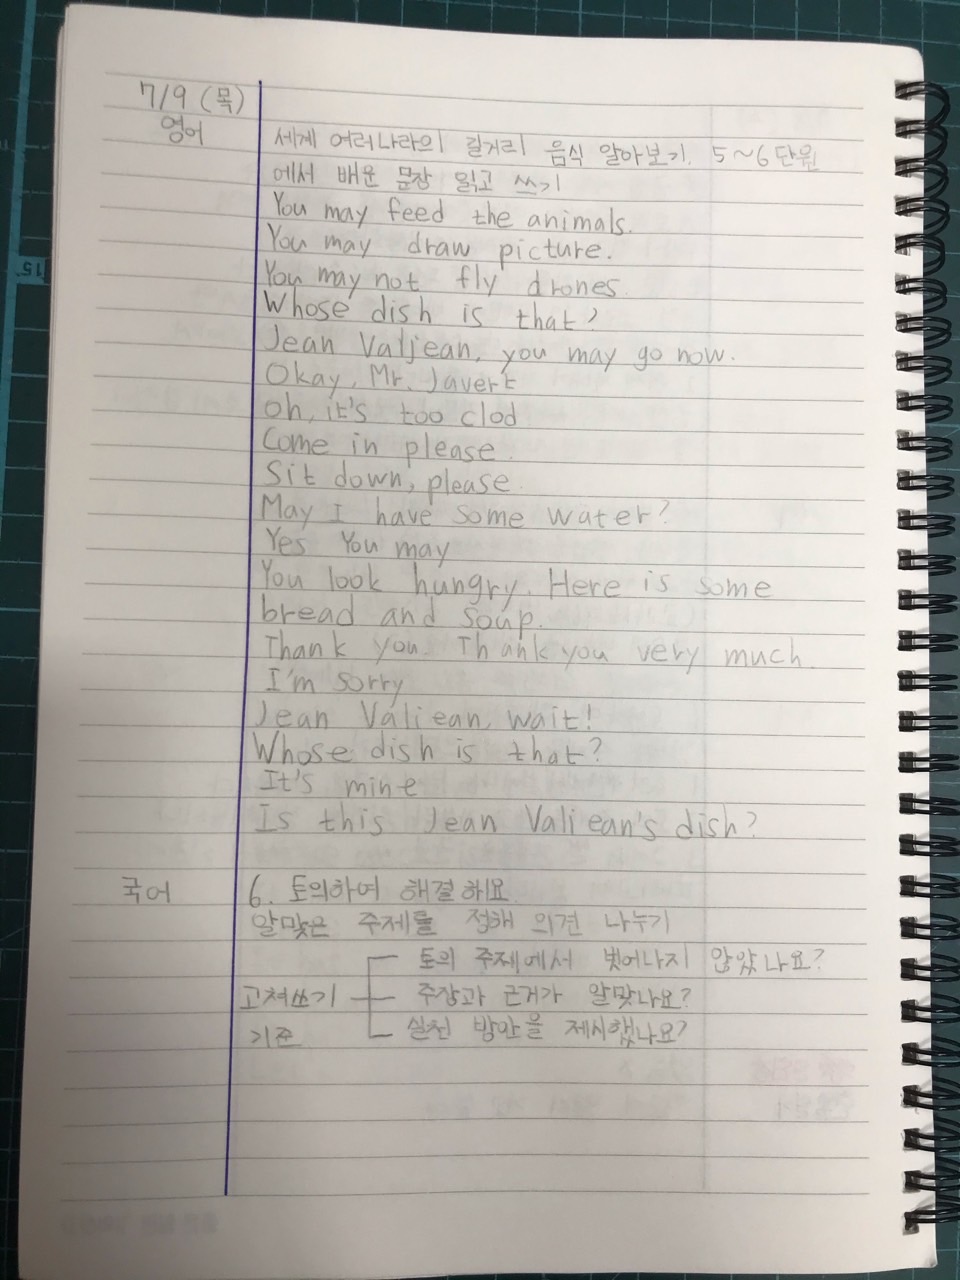 7/9 (목)
영어
세계 여러나라의 길거리 음식 알아보기. 5~6단원
에서 배운 문장 읽고 쓰기
You may feed the animals.
You may draw picture.
You may not fly drones.
Whose dish is that?
Jean Valjean, you may go now.
Okay, Mr. Javert
Oh, it's too clod
Come in please.
Sit down, please.
May I have some water?
Yes You may
You look hungry. Here is some
bread and soup.
Thank you. Thank you very much.
I'm sorry
Jean Valiean, wait!
Whose dish is that?
It's mine
Is this Jean Valiean's dish?
국어
6. 토의하여 해결해요.
알맞은 주제를 정해 의견 나누기
고쳐쓰기 기준
토의 주제에서 벗어나지 않았나요?
주장과 근거가 알맞나요?
실천 방안을 제시했나요?